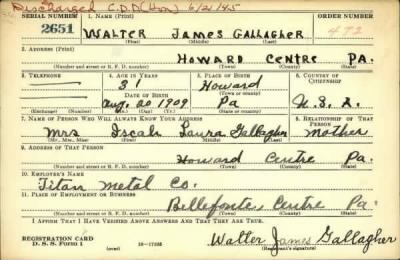 Discharged C.D.D. (Hon) 6/21/45
SERIAL NUMBER 1. NAME (Print) ORDER NUMBER
2651 WALTER JAMES GALLAGHER 472
(First) (Middle) (Last)
2. ADDRESS (Print)
HOWARD CENTRE PA.
(Number and street or R. F. D. number) (Town) (County) (State)
3. TELEPHONE 4. AGE IN YEARS 5. PLACE OF BIRTH 6. COUNTRY OF CITIZENSHIP
31 Howard
DATE OF BIRTH (Town or county)
Aug. 20 1909 Pa U.S.A.
(Exchange) (Number) (Mo.) (Day) (Yr.) (State or country)
7. NAME OF PERSON WHO WILL ALWAYS KNOW YOUR ADDRESS 8. RELATIONSHIP OF THAT PERSON
Mrs Iscah Laura Gallagher Mother
(Mr., Mrs., Miss) (First) (Middle) (Last)
9. ADDRESS OF THAT PERSON
Howard Centre Pa.
(Number and street or R. F. D. number) (Town) (County) (State)
10. EMPLOYER'S NAME
Titan Metal Co.
11. PLACE OF EMPLOYMENT OR BUSINESS
Bellefonte, Centre Pa.
(Number and street or R. F. D. number) (Town) (County) (State)
I AFFIRM THAT I HAVE VERIFIED ABOVE ANSWERS AND THAT THEY ARE TRUE.
REGISTRATION CARD
D. S. S. FORM 1 Walter James Gallagher
(Registrant's signature)